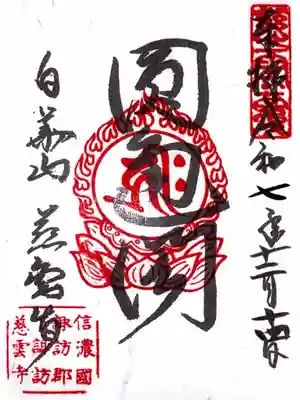 奉拝 令和七年十二月
圓通閣
白華山 慈雲寺
信濃國
諏訪郡
諏訪
慈雲寺